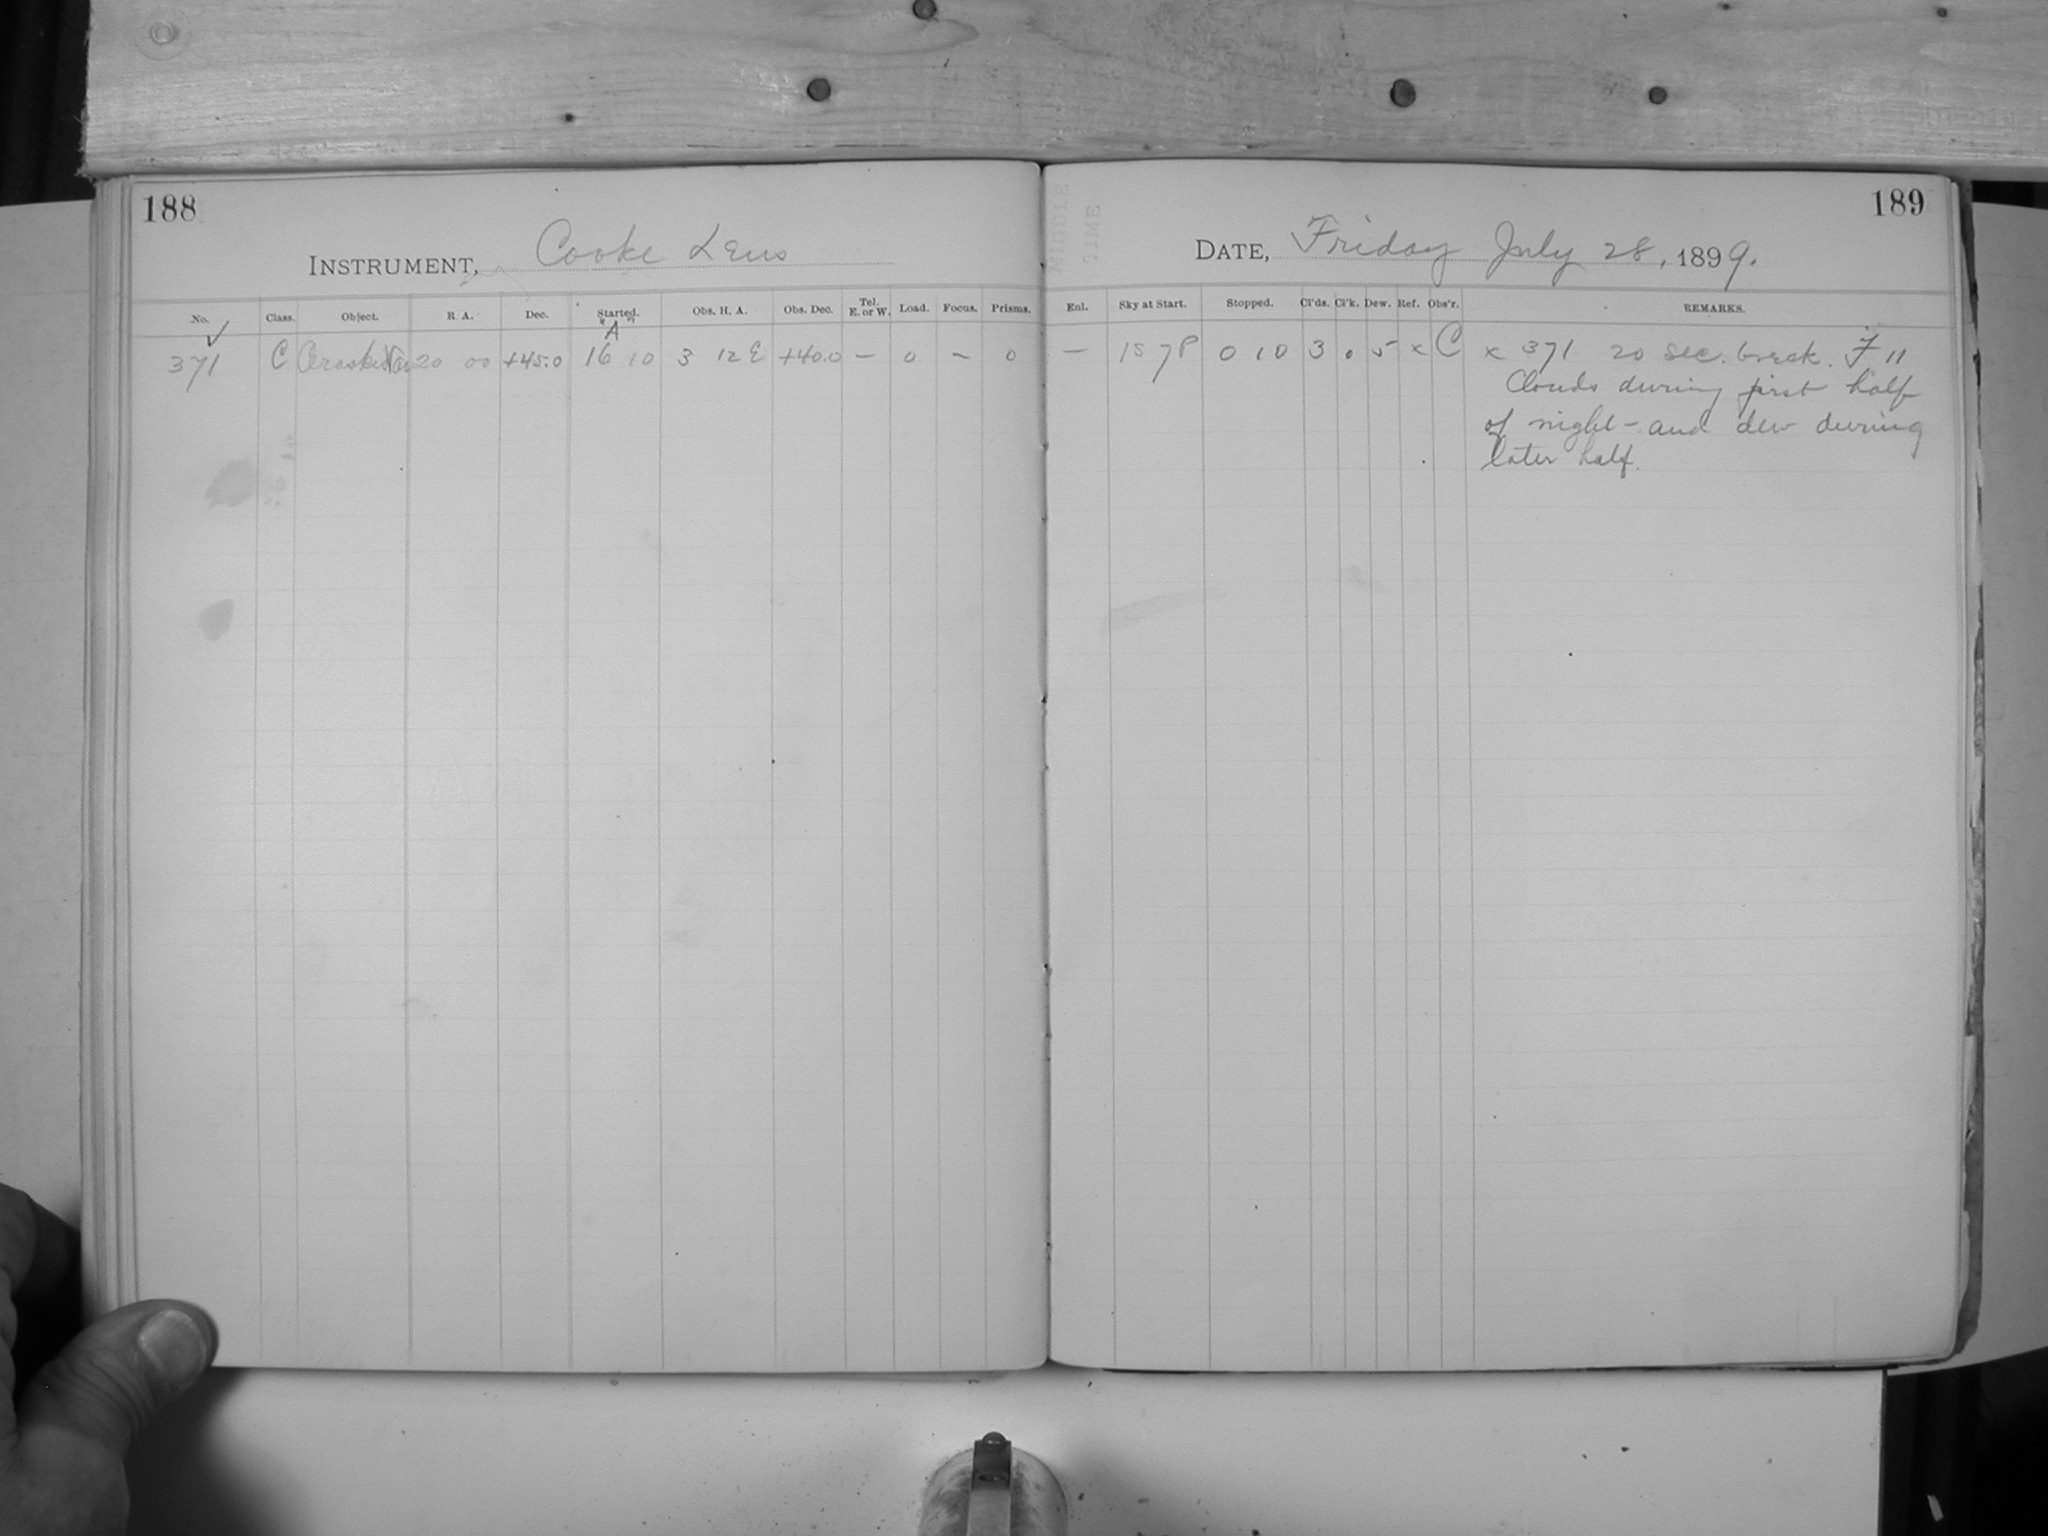 188
INSTRUMENT, Cooke Lens
No. Class. Object. R. A. Dec. Started. Obs. H. A. Obs. Dec. Tel. E. or W. Load. Focus. Prisms.
✓ "A"
371 C 20 00 +45.0 16 10 3 12 E +40.0 – 0 – 0
189
DATE, Friday July 28, 1899.
Enl. Sky at Start. Stopped. Cl'ds. Cl'k. Dew. Ref. Obs'r. REMARKS.
– 0 10 3 0 5 x C x 371 20 sec. break. F 11
Clouds during first half
of night – and dew during
later half.